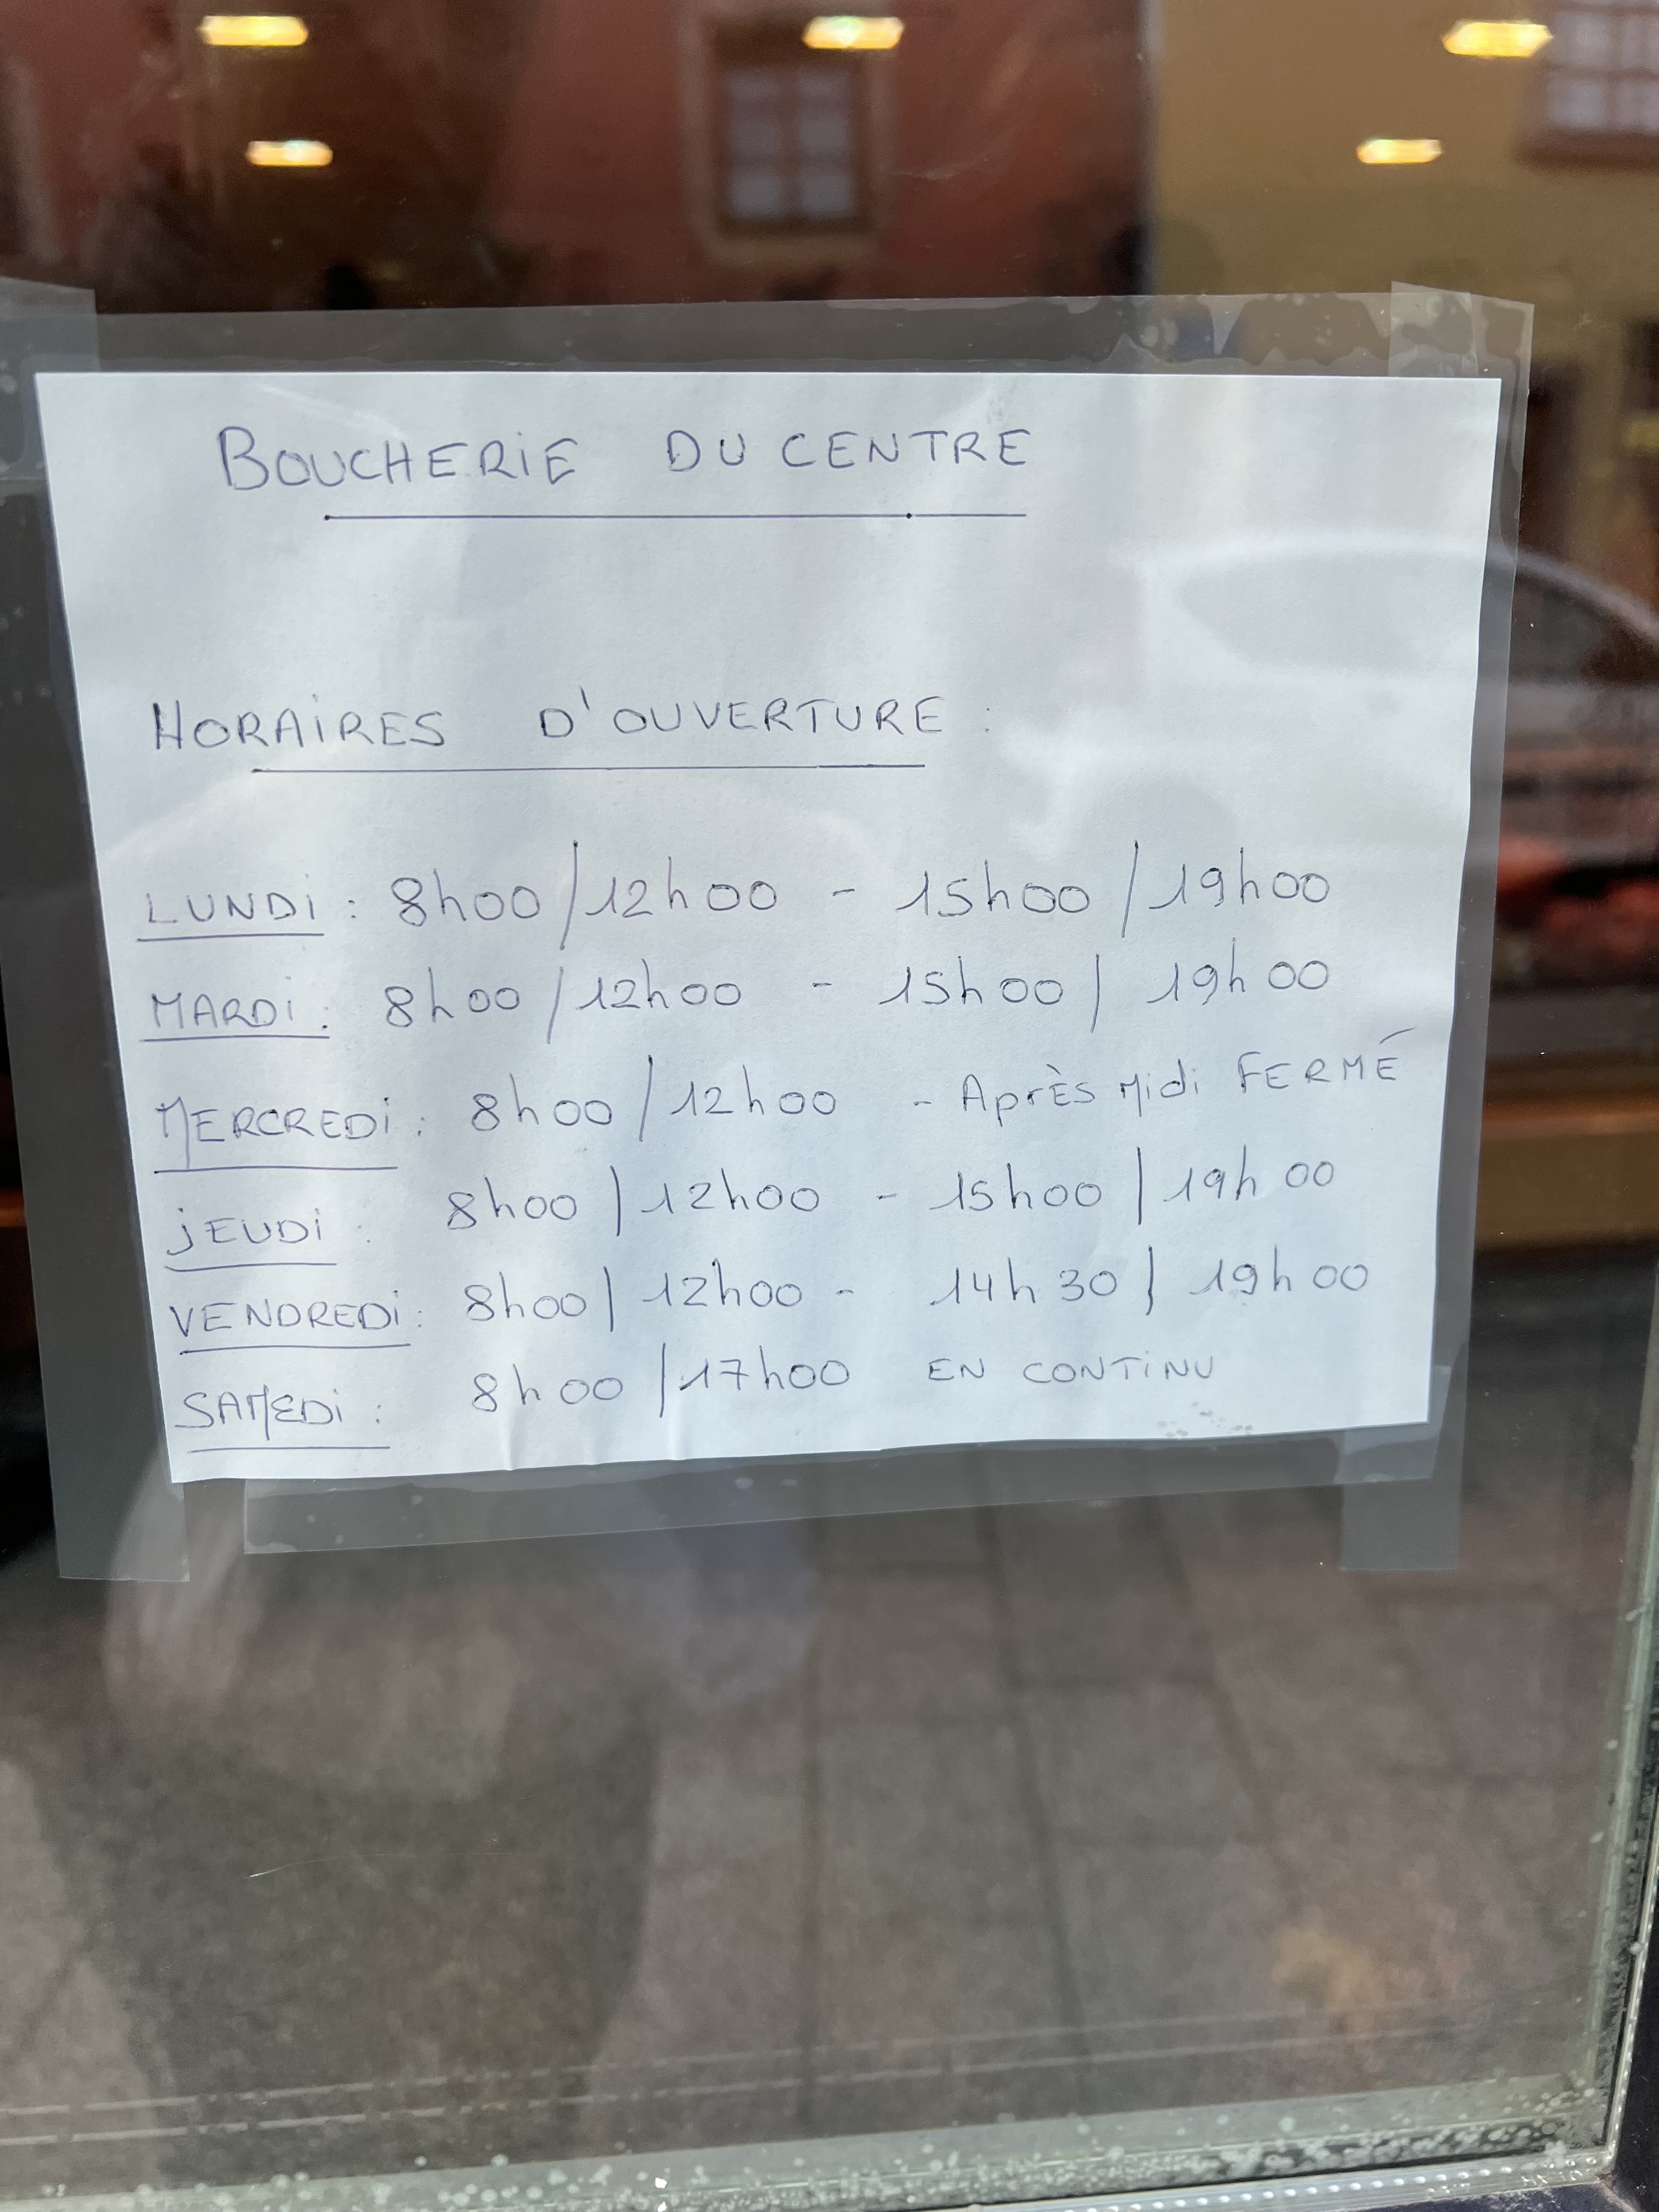 BOUCHERiE DU CENTRE
HORAiRES D'OUVERTURE :
LUNDi : 8h00 / 12h00 - 15h00 / 19h00
MARDi : 8h00 / 12h00 - 15h00 / 19h00
MERCREDi : 8h00 / 12h00 - APrÈS Midi FERMÉ
jEUDi : 8h00 / 12h00 - 15h00 / 19h00
VENDREDi : 8h00 / 12h00 - 14h30 / 19h00
SAMEDi : 8h00 / 17h00 EN CONTiNU